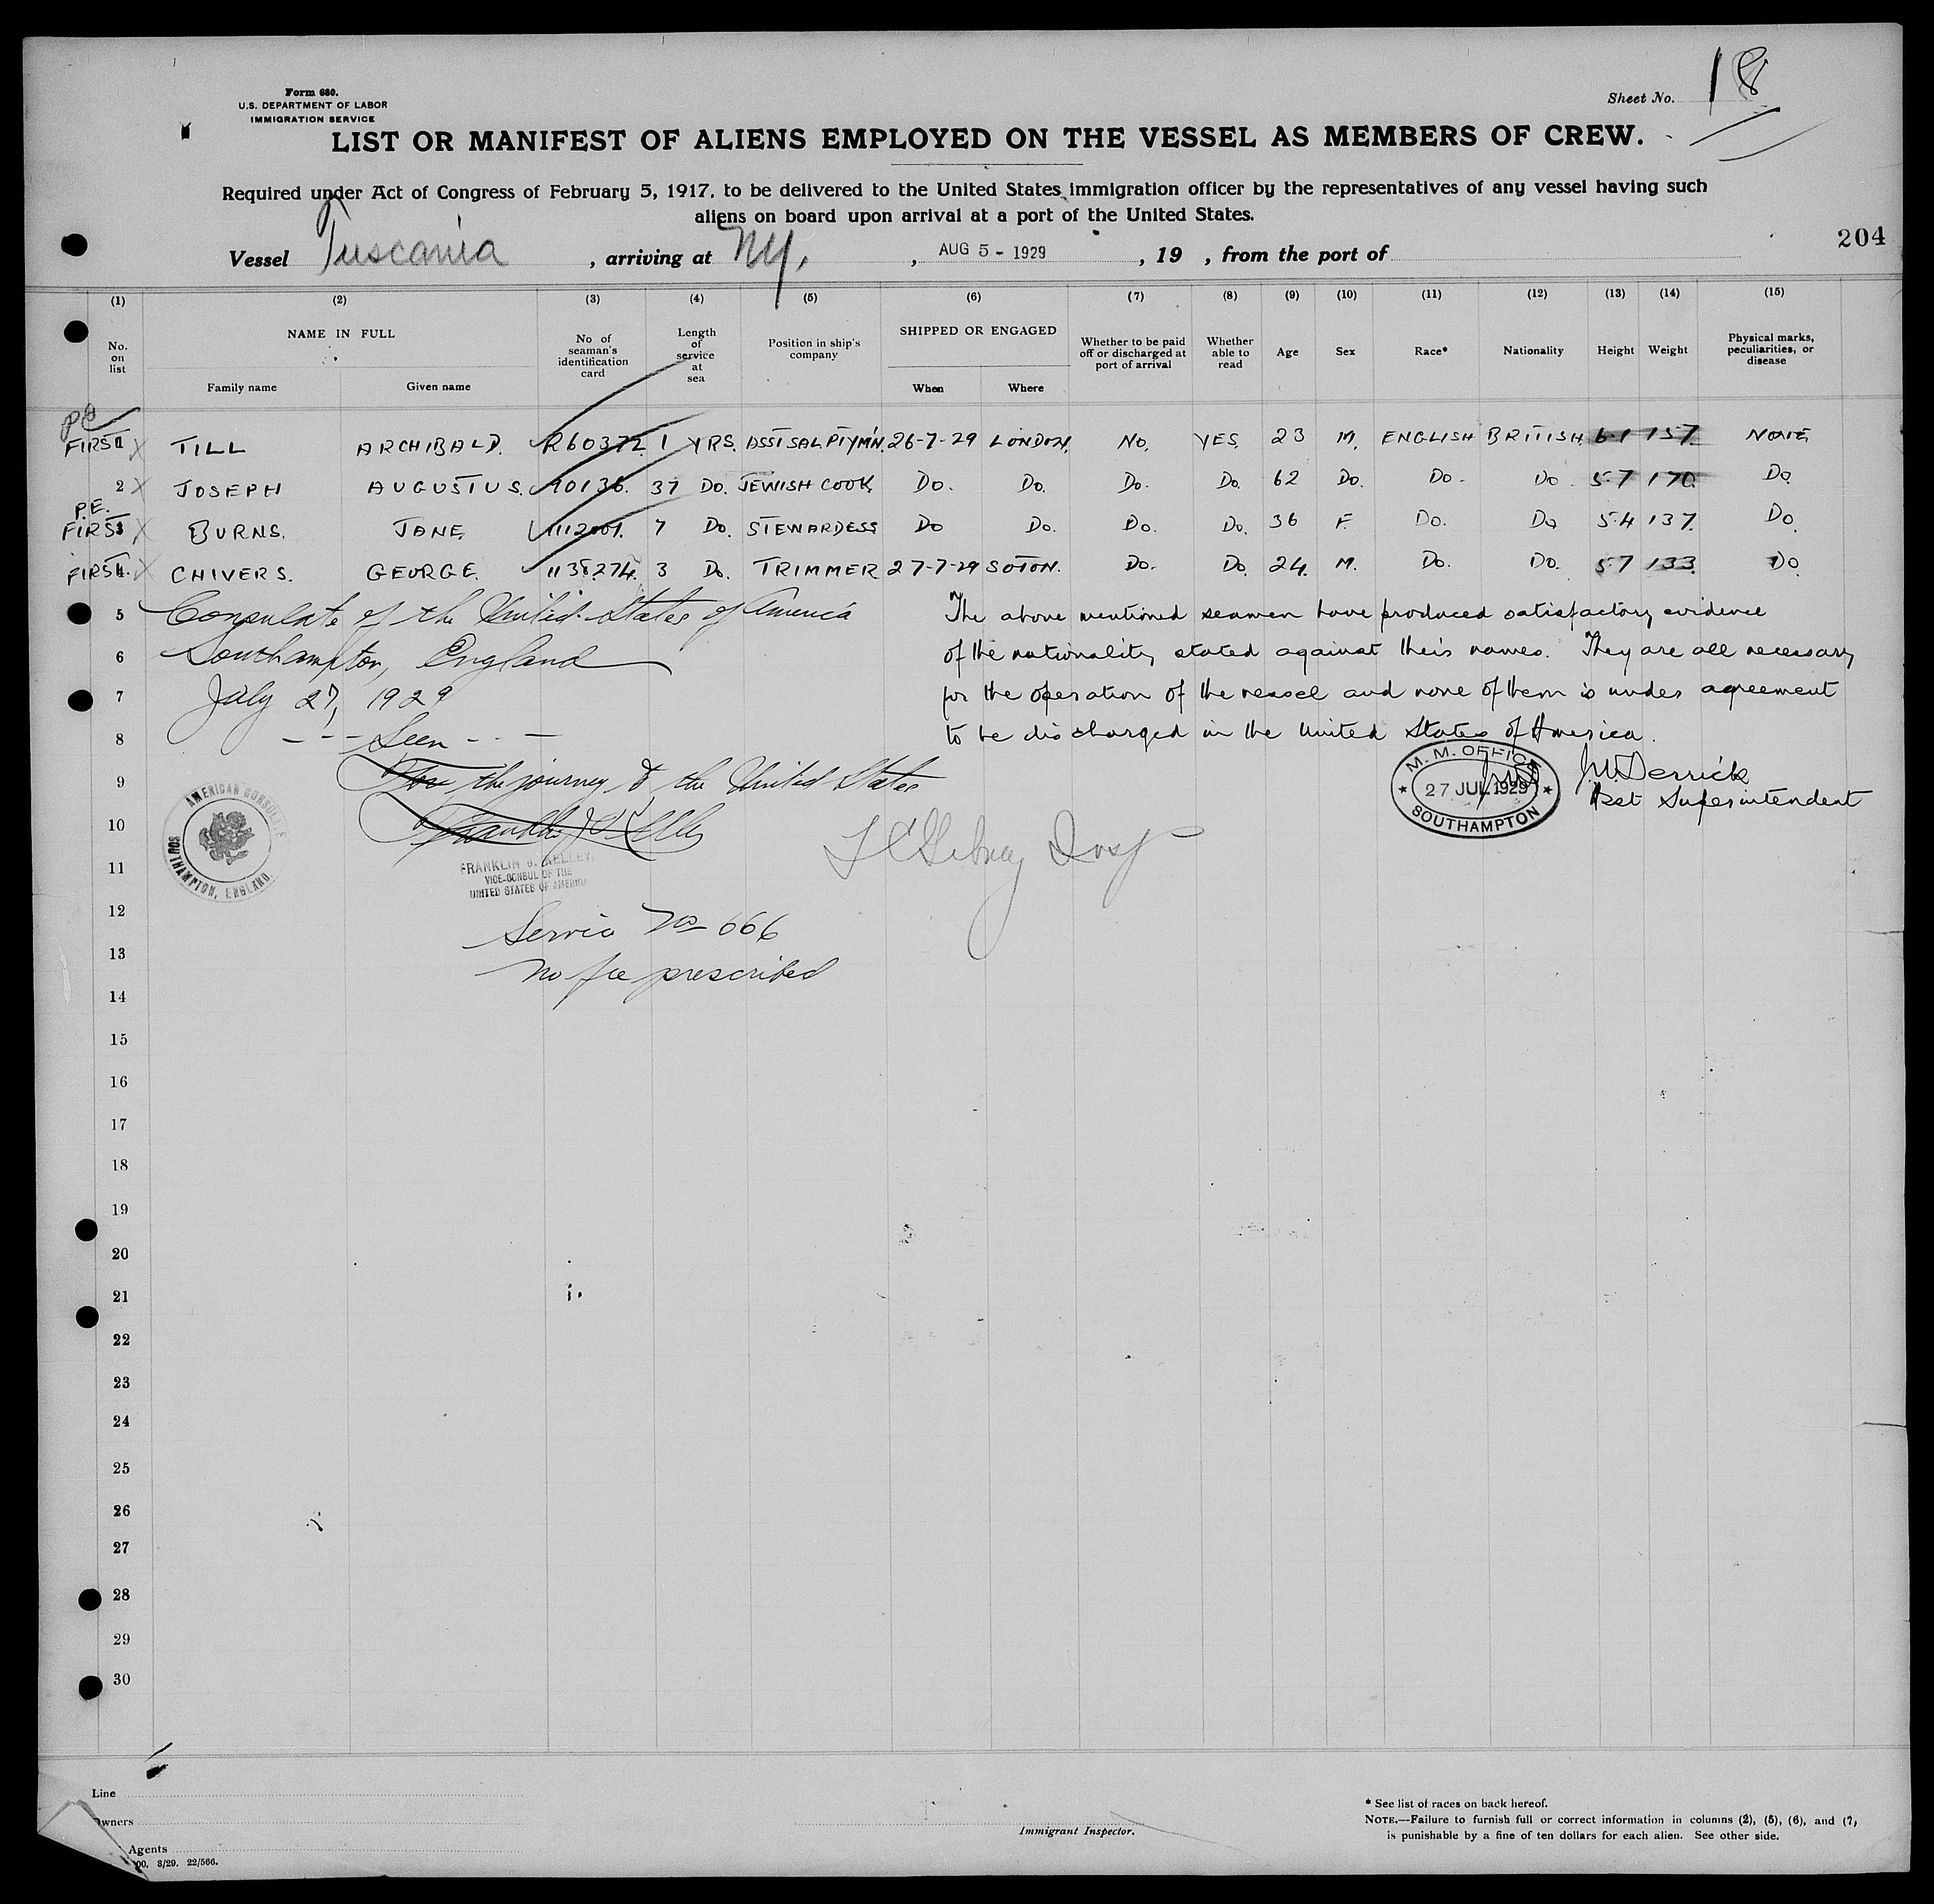 Form 680.
U.S. DEPARTMENT OF LABOR
IMMIGRATION SERVICE
Sheet No. 18
LIST OR MANIFEST OF ALIENS EMPLOYED ON THE VESSEL AS MEMBERS OF CREW.
Required under Act of Congress of February 5, 1917, to be delivered to the United States immigration officer by the representatives of any vessel having such
aliens on board upon arrival at a port of the United States.
204
Vessel Tuscania, arriving at NY., AUG 5 - 1929, 19 , from the port of
(1) (2) (3) (4) (5) (6) (7) (8) (9) (10) (11) (12) (13) (14) (15)
No. on list NAME IN FULL Family name Given name No of seaman's identification card Length of service at sea Position in ship's company SHIPPED OR ENGAGED When Where Whether to be paid off or discharged at port of arrival Whether able to read Age Sex Race* Nationality Height Weight Physical marks, peculiarities, or disease
FIRST 1 TILL ARCHIBALD. R60372 1 YRS. ASSTSALPTYM'N. 26-7-29 LONDON. NO. YES. 23 M. ENGLISH BRITISH. 6-1 157. NONE
2 JOSEPH AUGUSTUS. 90136. 37 DO. JEWISH COOK DO. DO. DO. DO. 62 DO. DO. DO. 5-7 170. DO
P.E.
FIRST 3 BURNS. JANE 7 DO. STEWARDESS DO DO. DO. DO. 36 F. DO. DO 5-4 137. DO.
FIRST 4. CHIVERS. GEORGE. 1138274. 3 DO. TRIMMER 27-7-29 SOTON. DO. DO. 24. M. DO. DO. 5-7 133. DO.
5 Consulate of the United States of America
6 Southampton, England
7 July 27, 1929
8 - - - Seen - - -
9 For the journey to the United States
10 Franklin J. Kelley
The above mentioned seamen have produced satisfactory evidence
of the nationality stated against their names. They are all necessary
for the operation of the vessel and none of them is under agreement
to be discharged in the United States of America.
M. M. OFFICE
27 JUL 1929
SOUTHAMPTON
Derrick
Asst Superintendent
AMERICAN CONSULATE
SOUTHAMPTON, ENGLAND.
FRANKLIN J. KELLEY,
VICE-CONSUL OF THE
UNITED STATES OF AMERICA
Service No 666
No fee prescribed
11
12
13
14
15
16
17
18
19
20
21
22
23
24
25
26
27
28
29
30
Line
Owners
Agents
00. 3/29. 22/566.
Immigrant Inspector.
* See list of races on back hereof.
NOTE.—Failure to furnish full or correct information in columns (2), (5), (6), and (7,
is punishable by a fine of ten dollars for each alien. See other side.